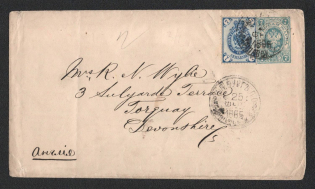 Mrs R. N. Wylie
3 Sulyarde Terrace
Torquay
Devonshire
Англія
7
7
25